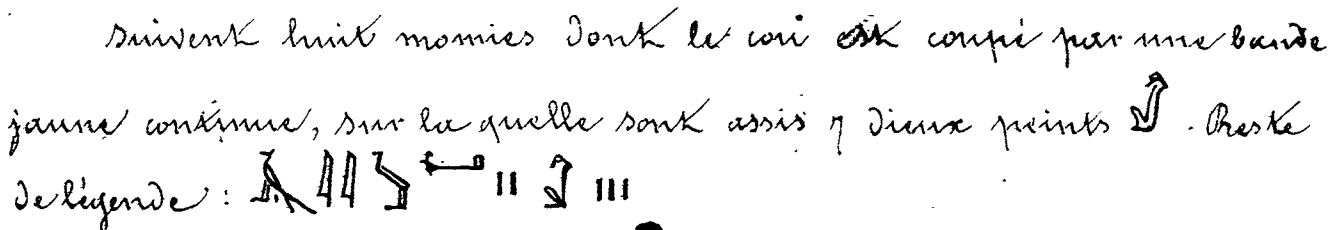 suivent huit momies dont le cou est coupé par une bande
jaune continue, sur la quelle sont assis 7 dieux peints . Reste
de légende :